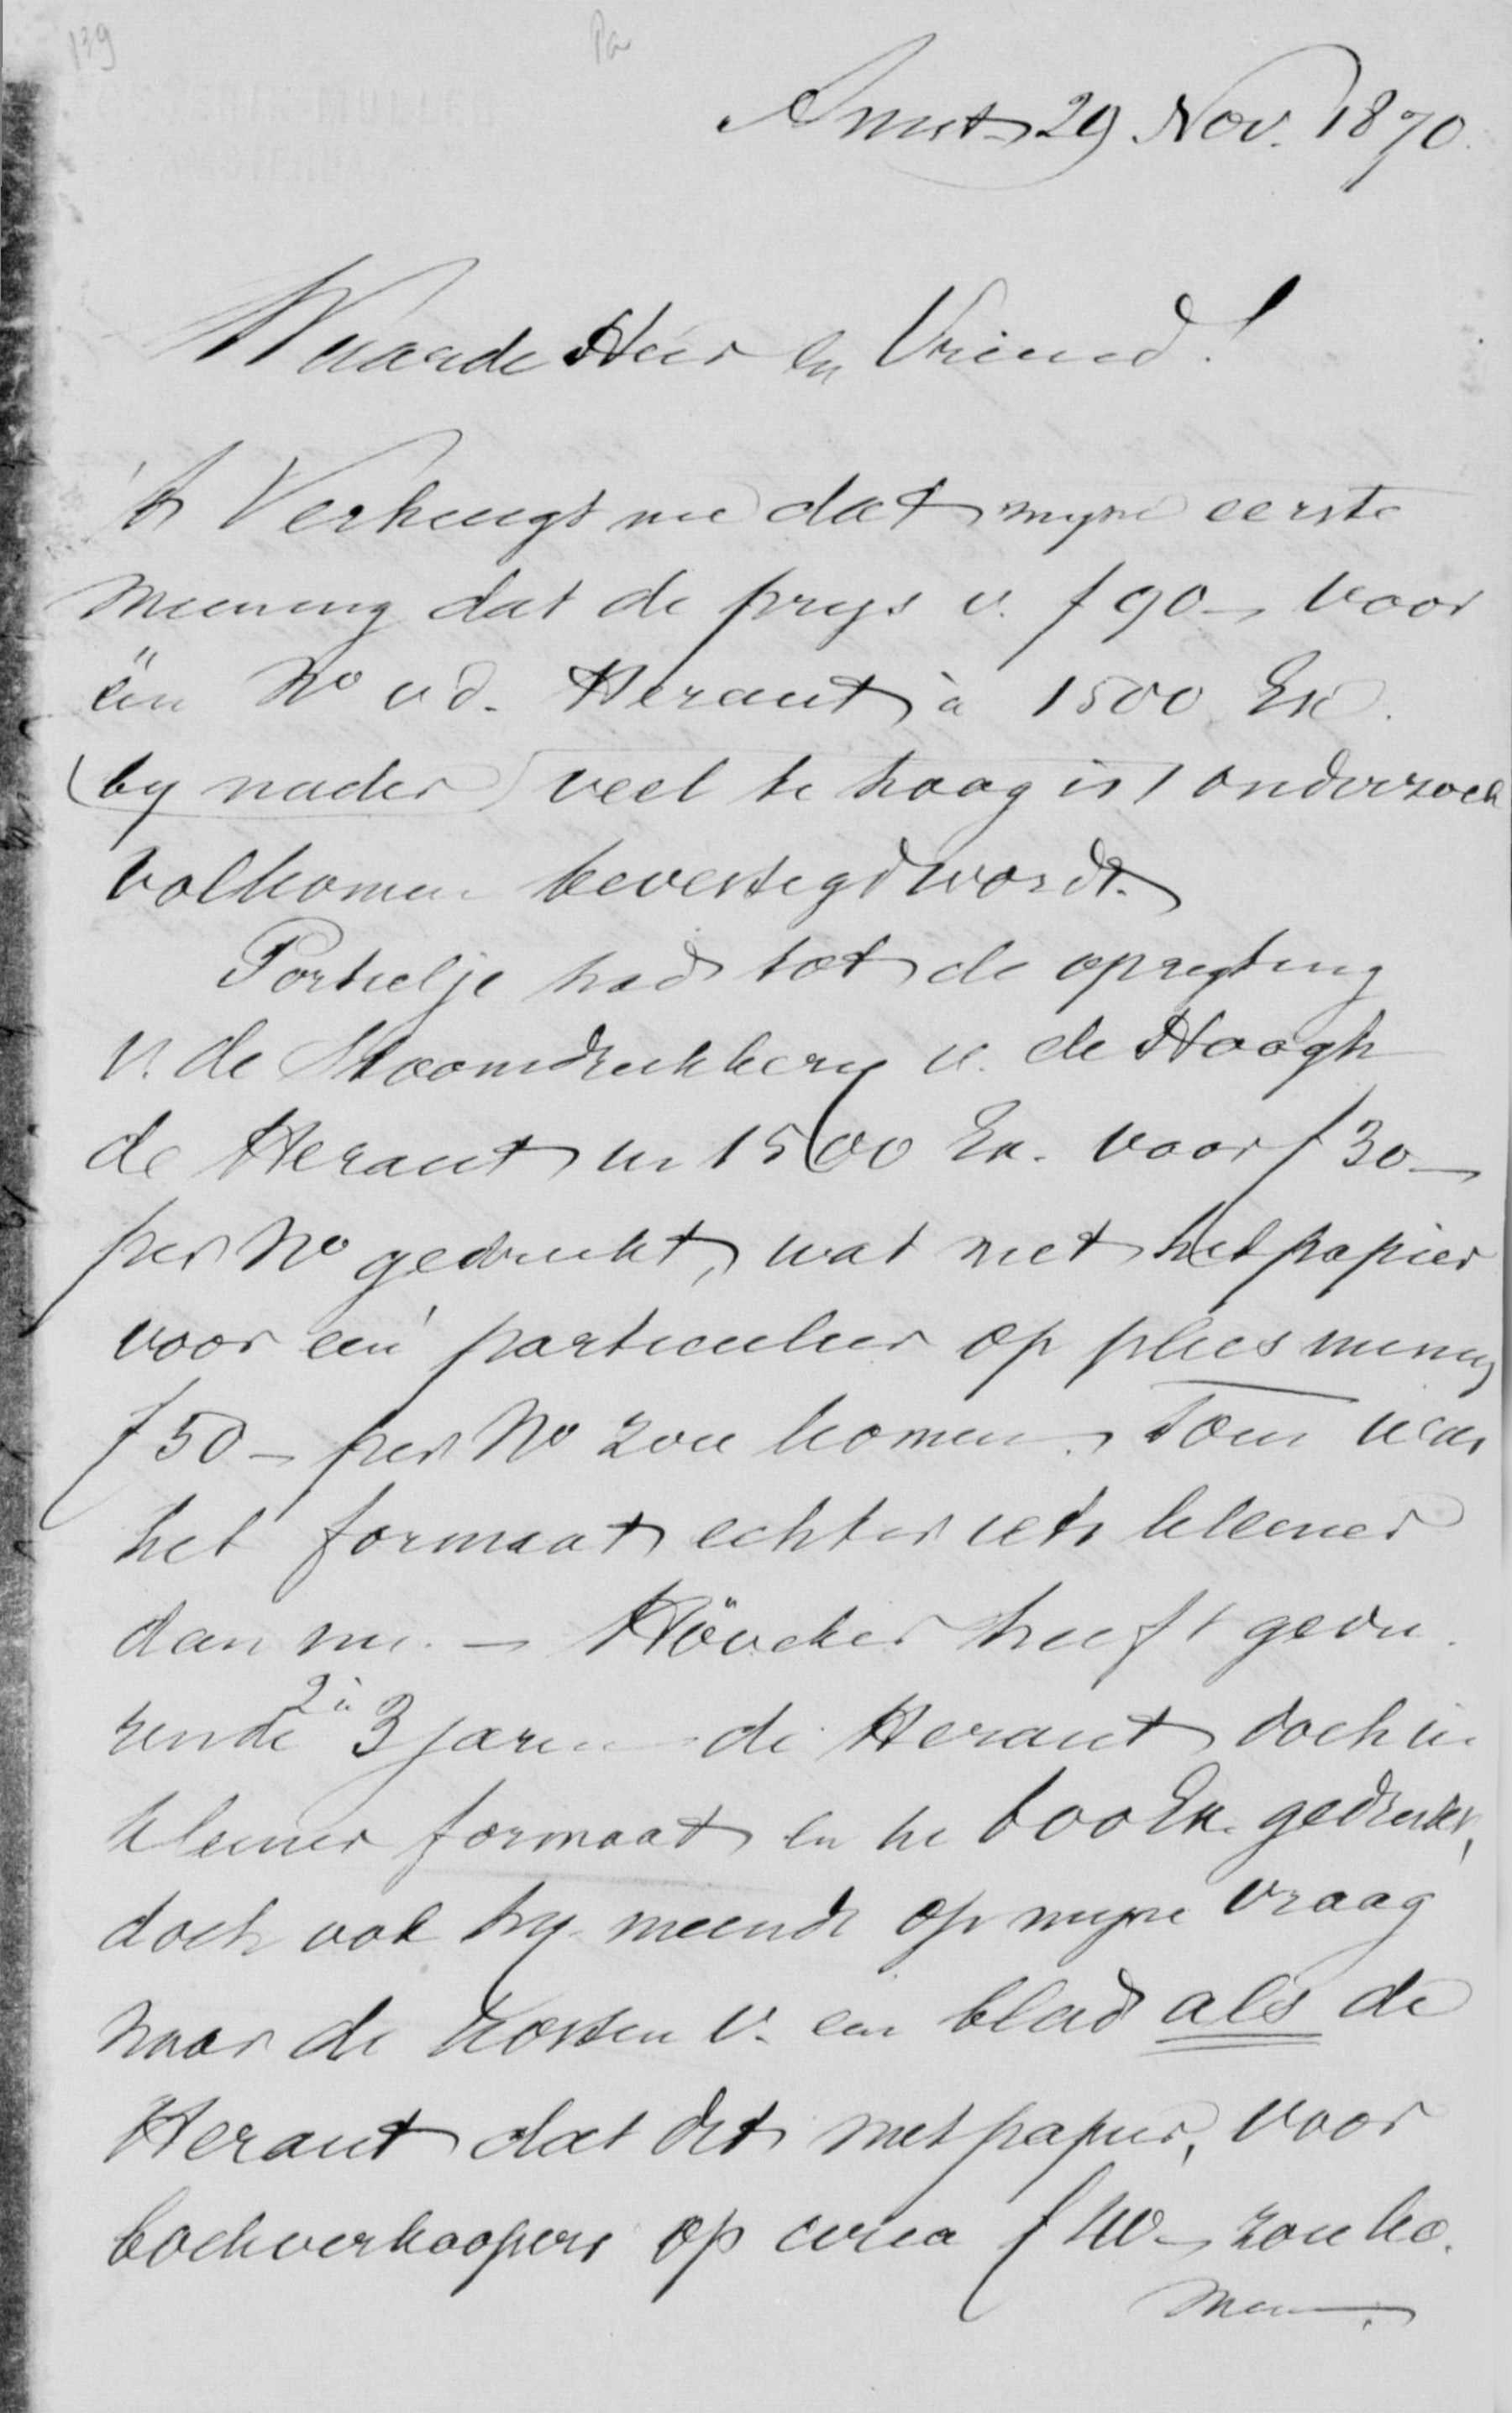 139
Pa
Amst 29 Nov. 1870.
Waarde Heer en Vriend!
't Verheugt me dat myne eerste
meening dat de prys v. f 90 - voor
één No v d. Heraut à 1500 Ex.
(by nader) veel te hoog is / onderzoek
volkomen bevestigd wordt.
Portielje had tot de oprigting
v. de Stoomdrukkery v. de Hoogh
de Heraut in 1500 Ex. voor f 30 -
per No gedrukt, wat met het papier
voor een particulier op plus minus
f 50 - per No zou komen. Toen was
het formaat echter iets kleiner
dan nu. - Höveker heeft gedu-
rende 2 à 3 jaren de Heraut doch in
kleiner formaat en in 600 Ex. gedrukt,
doch ook hy meende op myne vraag
naar de kosten v. een blad als de
Heraut dat dit met papier, voor
boekverkoopers op circa f 40 - zou ko-
men.